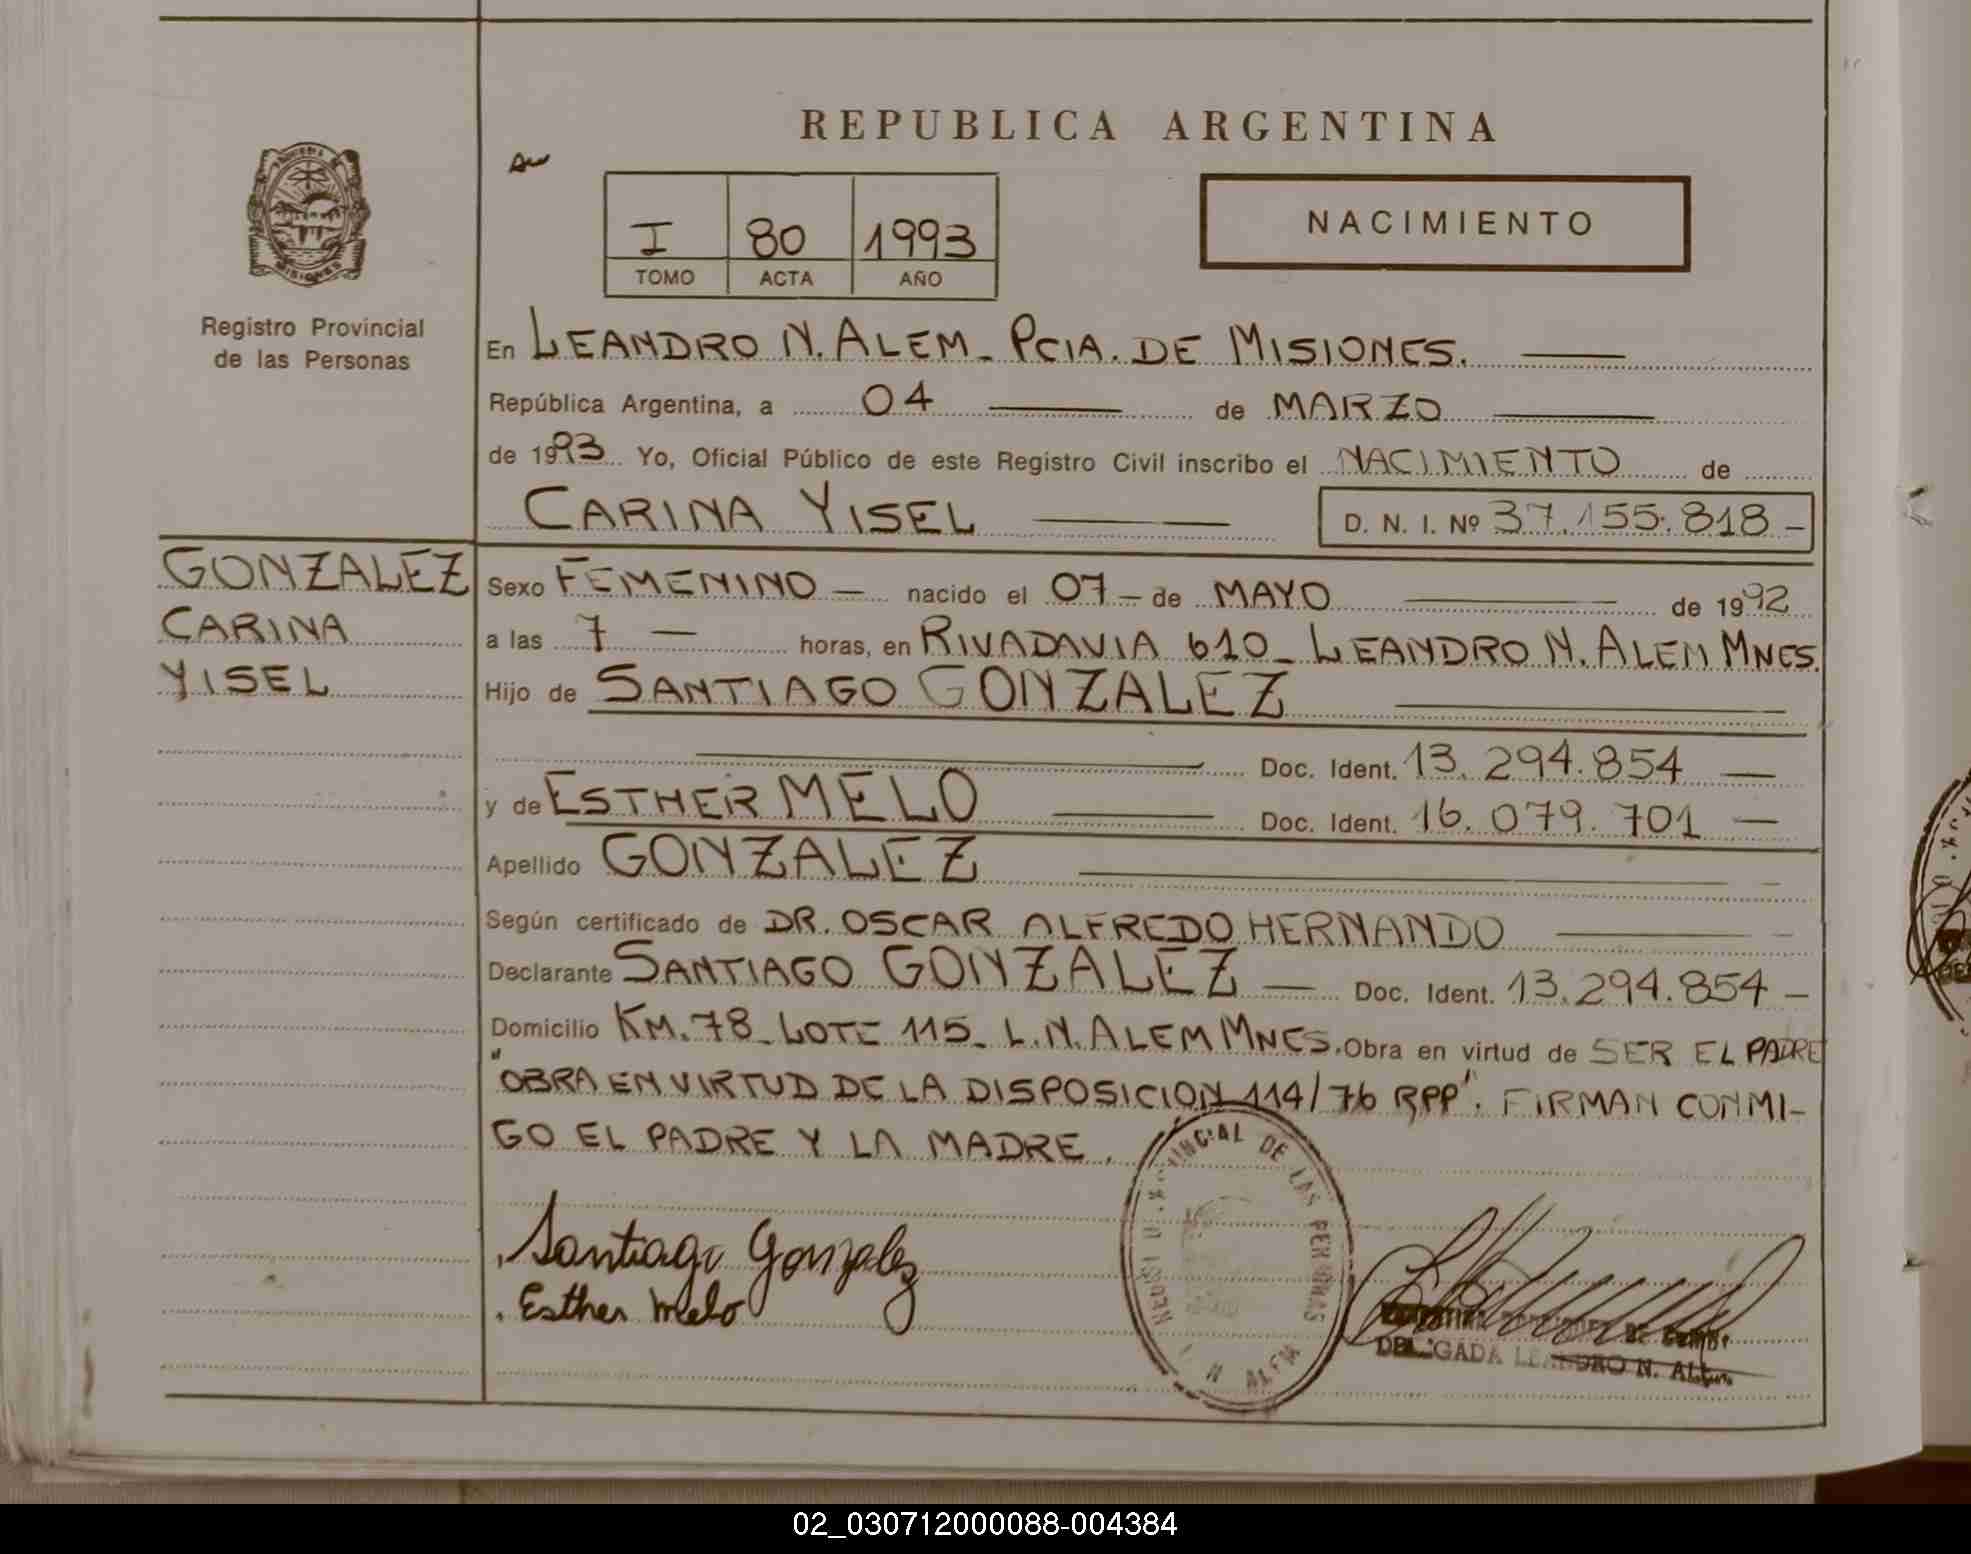 REPUBLICA ARGENTINA
NACIMIENTO
I 80 1993
TOMO ACTA AÑO
MISIONES
Registro Provincial
de las Personas
En LEANDRO N. ALEM - PCIA. DE MISIONES.
República Argentina, a 04 de MARZO
de 1993 Yo, Oficial Público de este Registro Civil inscribo el NACIMIENTO de
CARINA YISEL D. N. I. Nº 37.155.818 -
GONZALEZ
CARINA
YISEL
Sexo FEMENINO - nacido el 07 - de MAYO de 1992
a las 7 - horas, en RIVADAVIA 610 - LEANDRO N. ALEM MNES.
Hijo de SANTIAGO GONZALEZ
Doc. Ident. 13.294.854 -
y de ESTHER MELO Doc. Ident. 16.079.701 -
Apellido GONZALEZ
Según certificado de DR. OSCAR ALFREDO HERNANDO
Declarante SANTIAGO GONZALEZ - Doc. Ident. 13.294.854 -
Domicilio KM. 78 - LOTE 115 - L.N. ALEM MNES. Obra en virtud de SER EL PADRE
"OBRA EN VIRTUD DE LA DISPOSICION 114/76 RPP". FIRMAN CONMI-
GO EL PADRE Y LA MADRE.
Santiago Gonzalez
Esther Melo
DE LAS PERSONAS
N. ALEM
DELEGADA LEANDRO N. ALEM
02_030712000088-004384